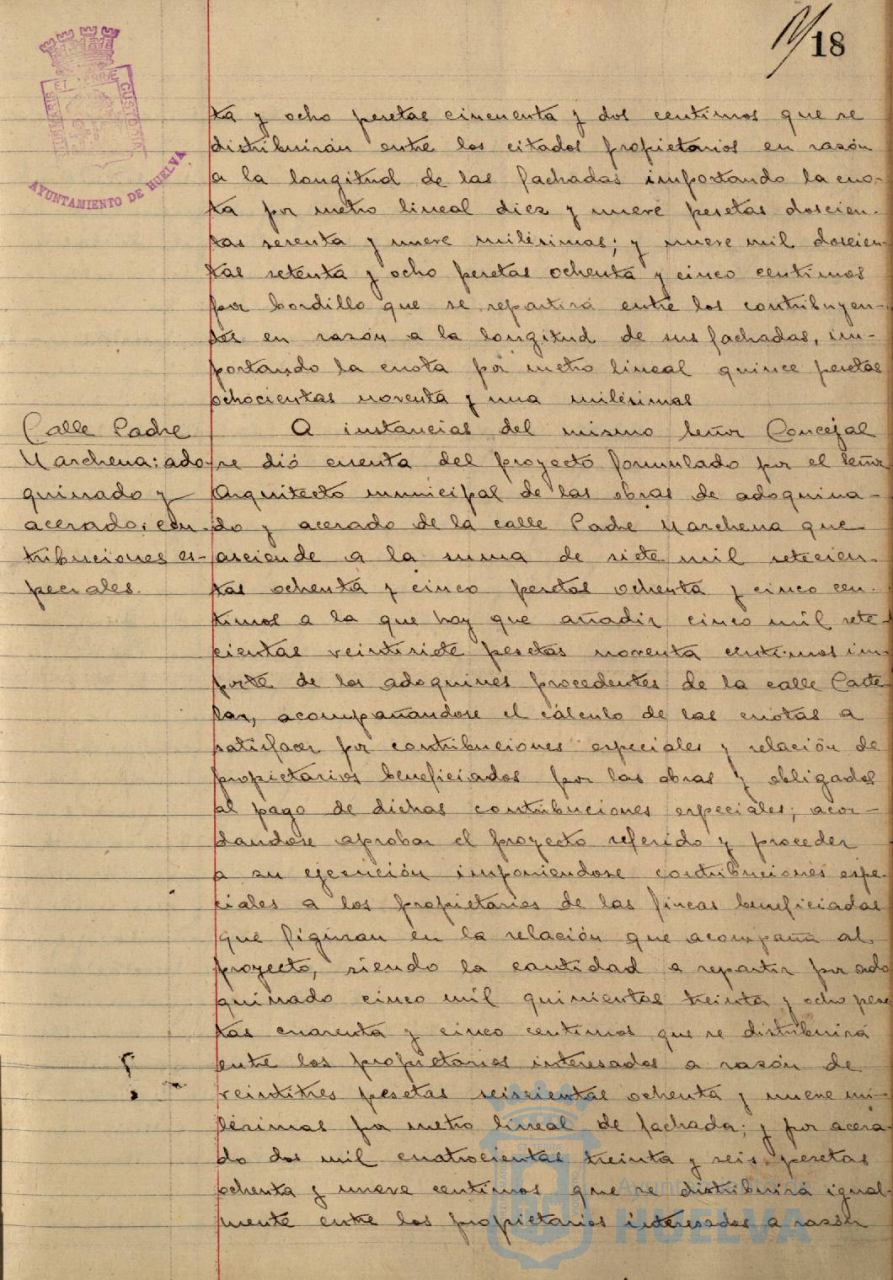 18
AYUNTAMIENTO DE HUELVA
ta y ocho pesetas cincuenta y dos centimos que se
distribuirán entre los citados propietarios en razón
a la longitud de las fachadas importando la cuo-
ta por metro lineal diez y nueve pesetas doscien-
tas sesenta y nueve milésimas; y nueve mil doscien-
tas setenta y ocho pesetas ochenta y cinco centimos
por bordillo que se repartirá entre los contribuyen-
tes en razón a la longitud de sus fachadas, im-
portando la cuota por metro lineal quince pesetas
ochocientas noventa y una milésimas
Calle Padre
Marchena: ado-
quinado y
acerado: con-
tribuciones es-
peciales.
A instancias del mismo Señor Concejal
se dió cuenta del proyecto formulado por el Señor
Arquitecto municipal de las obras de adoquina-
do y acerado de la calle Padre Marchena que
asciende a la suma de siete mil setecien-
tas ochenta y cinco pesetas ochenta y cinco cen-
timos a la que hay que añadir cinco mil sete-
cientas veintisiete pesetas noventa centimos im-
porte de los adoquines procedentes de la calle Caste-
lar, acompañandose el cálculo de las cuotas a
satisfacer por contribuciones especiales y relación de
propietarios beneficiados por las obras y obligados
al pago de dichas contribuciones especiales; acor-
dandose aprobar el proyecto referido y proceder
a su ejecución imponiendose contribuciones espe-
ciales a los propietarios de las fincas beneficiadas
que figuran en la relación que acompaña al
proyecto, siendo la cantidad a repartir por ado
quinado cinco mil quinientas treinta y ocho pese
tas cuarenta y cinco centimos que se distribuirá
entre los propietarios interesados a razón de
veintitres pesetas seiscientas ochenta y nueve mi-
lésimas por metro lineal de fachada; y por acera-
do dos mil cuatrocientas treinta y seis pesetas
ochenta y nueve centimos que se distribuirá igual-
mente entre los propietarios interesados a razón
Ayuntamiento de
HUELVA